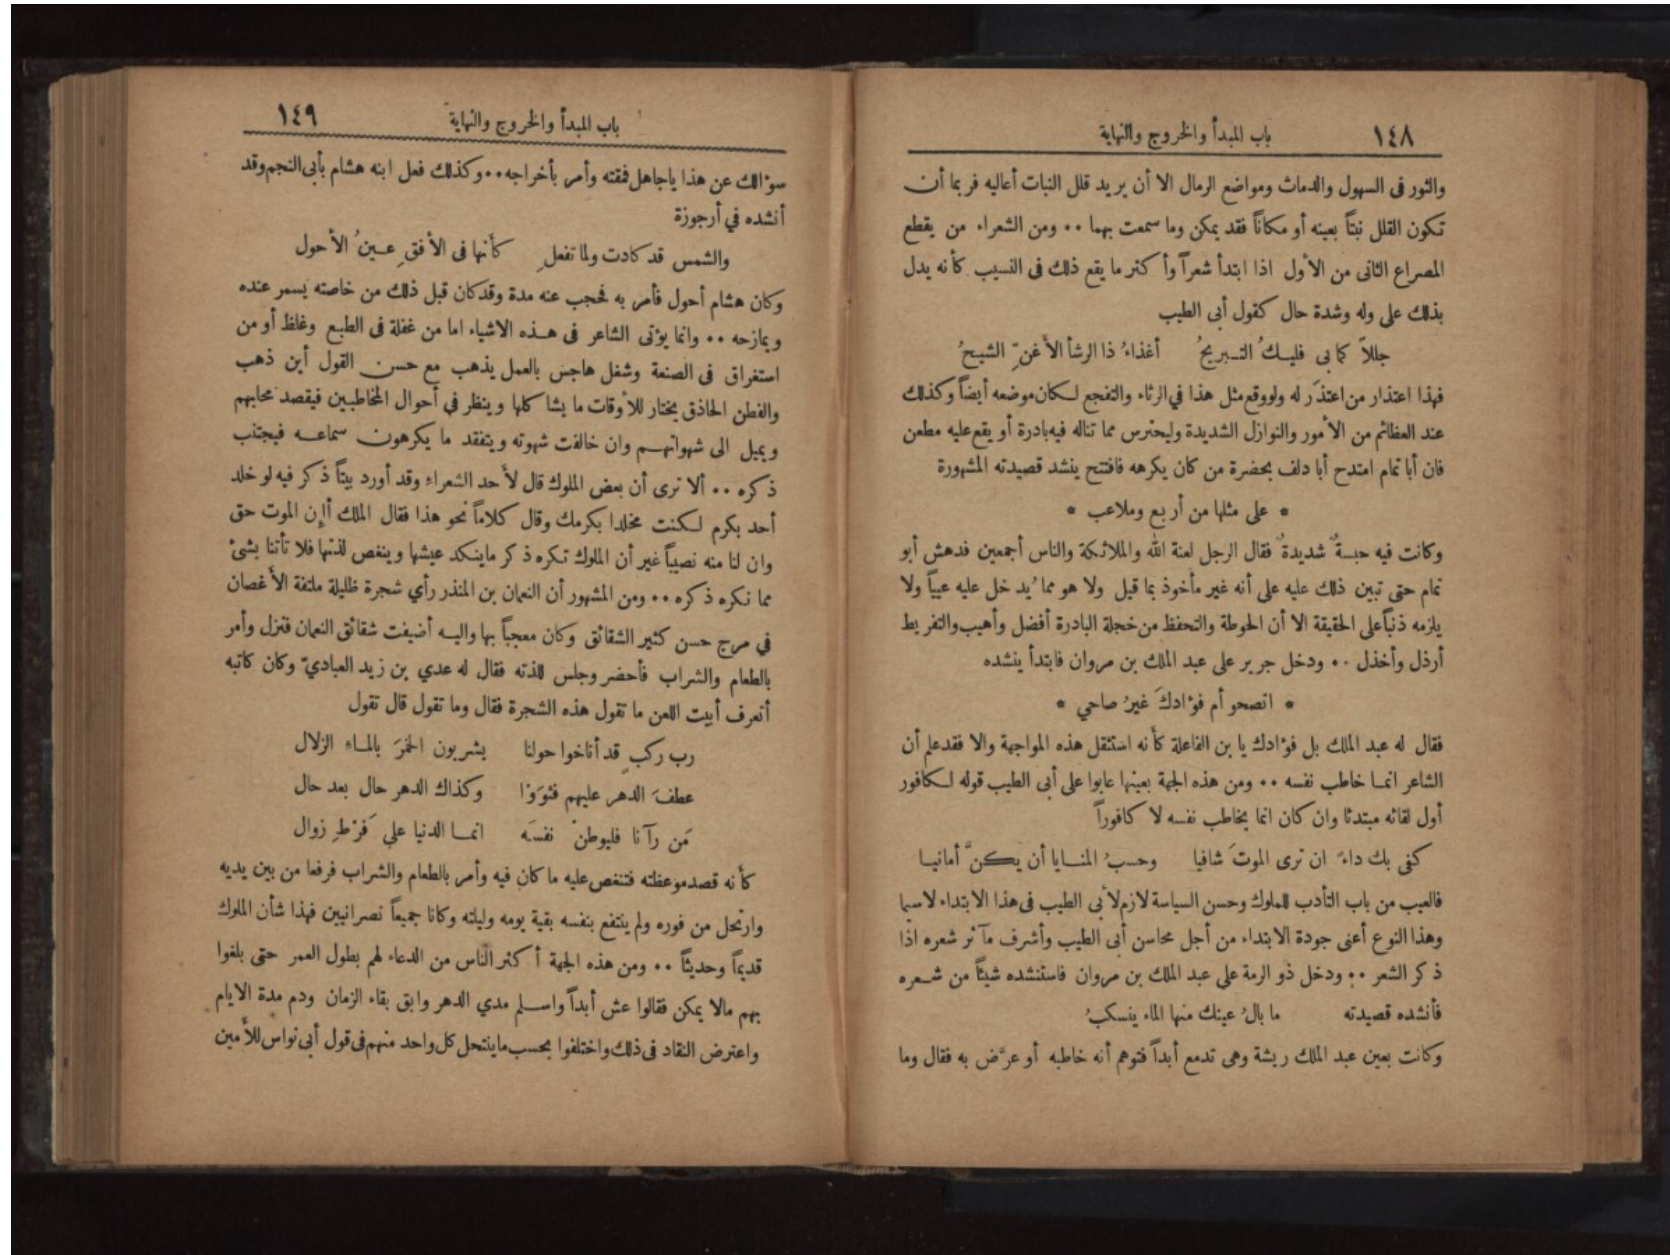 ١٤٨ باب المبدأ والخروج والنهاية
والثور فى السهول والدماث ومواضع الرمال الا أن يريد قلل النبات أعاليه فربما أن
تكون القلل نبتاً بعينه أو مكاناً فقد يمكن وما سمعت بهما ٠٠ ومن الشعراء من يقطع
المصراع الثانى من الأول اذا ابتدأ شعراً وأكثر ما يقع ذلك فى النسيب كأنه يدل
بذلك على وله وشدة حال كقول أبى الطيب
جللاً كما بى فليــك التــبريحُ أغذاءُ ذا الرشأ الأغنّ الشيحُ
فهذا اعتذار من اعتذَر له ولو وقع مثل هذا في الرثاء والتفجع لــكان موضعه أيضاً وكذلك
عند العظائم من الأمور والنوازل الشديدة وليحترس مما تناله فيه بادرة أو يقع عليه مطعن
فان أبا تمام امتدح أبا دلف بحضرة من كان يكرهه فافتتح ينشد قصيدته المشهورة
* على مثلها من أربع وملاعب *
وكانت فيه حبســةٌ شديدةٌ فقال الرجل لعنة الله والملائكة والناس أجمعين فدهش أبو
تمام حتى تبين ذلك عليه على أنه غير مأخوذ بما قيل ولا هو مما يُدخل عليه عيباً ولا
يلزمه ذنباً على الحقيقة الا أن الحوطة والتحفظ من خجلة البادرة أفضل وأهيب والتفريط
أرذل وأخذل ٠٠ ودخل جرير على عبد الملك بن مروان فابتدأ ينشده
* اتصحو أم فؤادكَ غيرُ صاحي *
فقال له عبد الملك بل فؤادك يا بن الفاعلة كأنه استثقل هذه المواجهة والا فقد علم أن
الشاعر انمــا خاطب نفسه ٠٠ ومن هذه الجهة بعينها عابوا على أبى الطيب قوله لــكافور
أول لقائه مبتدئا وان كان انما يخاطب نفسه لا كافوراً
كفى بك داءً ان ترى الموتَ شافيا وحسبُ المنــايا أن يكنَّ أمانيــا
فالعيب من باب التأدب للملوك وحسن السياسة لازم لأبى الطيب فى هذا الابتداء لاسيما
وهذا النوع أعنى جودة الابتداء من أجل محاسن أبى الطيب وأشرف مآثر شعره اذا
ذكر الشعر ٠٠ ودخل ذو الرمة على عبد الملك بن مروان فاستنشده شيئاً من شــعره
فأنشده قصيدته ما بالُ عينك منها الماء ينسكبُ
وكانت بعين عبد الملك ريشة وهى تدمع أبداً فتوهم أنه خاطبه أو عرَّض به فقال وما
باب المبدأ والخروج والنهاية ١٤٩
سؤالك عن هذا ياجاهل فمقته وأمر بأخراجه ٠٠ وكذلك فعل ابنه هشام بأبى النجم وقد
أنشده في أرجوزة
والشمس قد كادت ولما تفعلِ كأنها فى الأفقِ عــينُ الأحول
وكان هشام أحول فأمر به فحجب عنه مدة وقد كان قبل ذلك من خاصته يسمر عنده
ويمازحه ٠٠ وانما يؤتى الشاعر فى هــذه الاشياء اما من غفلة فى الطبع وغلظ أو من
استغراق فى الصنعة وشغل هاجس بالعمل يذهب مع حسن القول أين ذهب
والفطن الحاذق يختار للأوقات ما يشاكلها وينظر في أحوال المخاطبــين فيقصد محابهم
ويميل الى شهواتهــم وان خالفت شهوته ويتفقد ما يكرهون سماعــه فيجتنب
ذكره ٠٠ ألا ترى أن بعض الملوك قال لأحد الشعراء وقد أورد بيتاً ذكر فيه لو خلد
أحد بكرم لــكنت مخلدا بكرمك وقال كلاماً نحو هذا فقال الملك أإن الموت حق
وان لنا منه نصيباً غير أن الملوك تكره ذكر ماينكد عيشها وينغص لذتها فلا تأتنا بشئ
مما نكره ذكره ٠٠ ومن المشهور أن النعمان بن المنذر رأي شجرة ظليلة ملتفة الأغصان
في مرج حسن كثير الشقائق وكان معجباً بها واليــه أضيفت شقائق النعمان فنزل وأمر
بالطعام والشراب فأحضر وجلس للذته فقال له عدي بن زيد العباديّ وكان كاتبه
أتعرف أبيت اللعن ما تقول هذه الشجرة فقال وما تقول قال تقول
رب ركبٍ قد أناخوا حولنا يشربون الخمرَ بالمــاء الزلال
عطفَ الدهر عليهم فثوَوْا وكذاك الدهر حال بعد حال
مَن رآنا فليوطنْ نفسَه انمــا الدنيا علي قَرْطِ زوال
كأنه قصد موعظته فتنغص عليه ما كان فيه وأمر بالطعام والشراب فرفعا من بين يديه
وارتحل من فوره ولم ينتفع بنفسه بقية يومه وليلته وكانا جميعاً نصرانيين فهذا شأن الملوك
قديماً وحديثاً ٠٠ ومن هذه الجهة أكثر الناس من الدعاء لهم بطول العمر حتى بلغوا
بهم مالا يمكن فقالوا عش أبداً واســلم مدي الدهر وابق بقاء الزمان ودم مدة الايام
واعترض النقاد فى ذلك واختلفوا بحسب ماينتحل كل واحد منهم فى قول أبى نواس للأمين